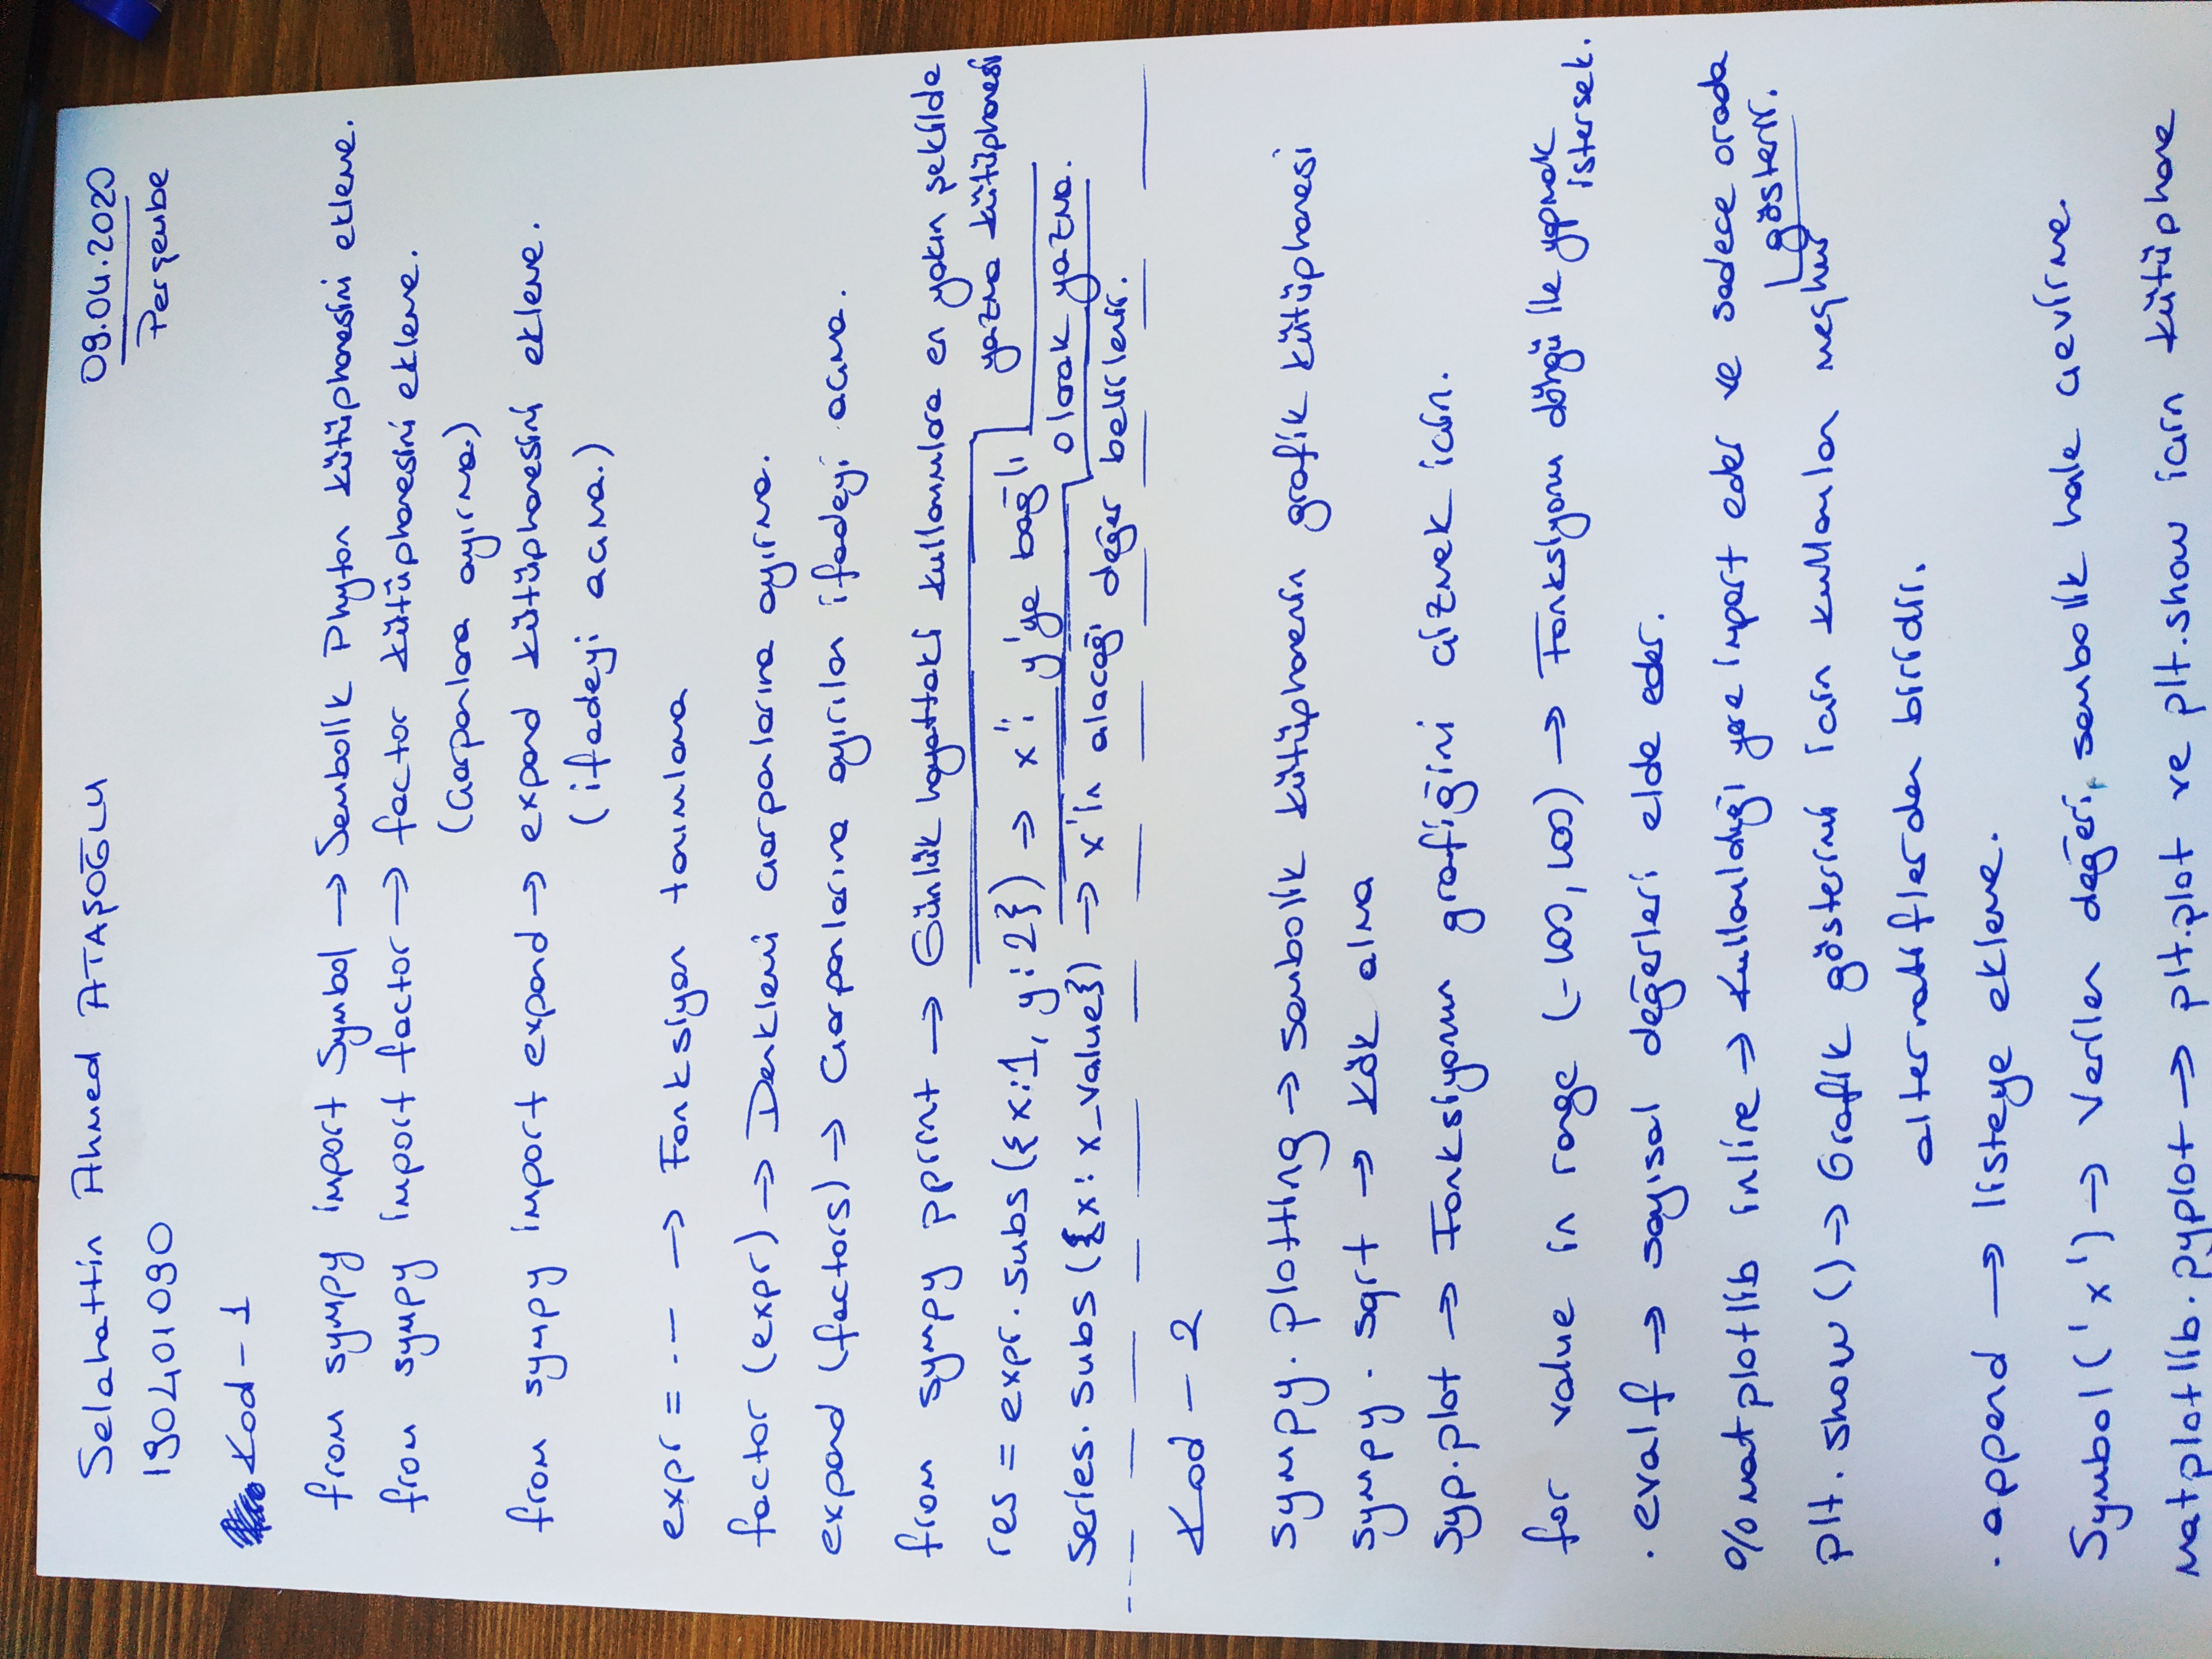 Selahattin Ahmed ATAŞOĞLU
190401090
09.04.2020
Perşembe
Kod-1
from sympy import Symbol → Sembolik Phyton kütüphanesini ekleme.
from sympy import factor → factor kütüphanesini ekleme.
(Çarpanlara ayırma.)
from sympy import expand → expand kütüphanesini ekleme.
(ifadeyi açma.)
expr = --- → Fonksiyon tanımlama
factor (expr) → Denklemi çarpanlarına ayırma.
expand (factors) → Çarpanlarına ayrılan ifadeyi açma.
from sympy pprint → Günlük hayattaki kullanımlara en yakın şekilde
yazma kütüphanesi
res = expr.subs({x:1, y:2}) → x'i y'ye bağlı
olarak yazma.
series.subs({x: x_value}) → x'in alacağı değer belirlenir.
Kod-2
sympy.plotting → sembolik kütüphanenin grafik kütüphanesi
sympy.sqrt → kök alma
syp.plot → Fonksiyonun grafiğini çizmek için.
for value in range (-100, 100) → Fonksiyonu döngü ile yapmak
istersek.
.evalf → sayısal değerleri elde eder.
%matplotlib inline → kullanıldığı yere import eder ve sadece orada
gösterir.
plt.show() → Grafik gösterimi için kullanılan meşhur
alternatiflerden biridir.
.append → listeye ekleme.
Symbol('x') → Verilen değeri, sembolik hale çevirme.
matplotlib.pyplot → plt.plot ve plt.show için kütüphane